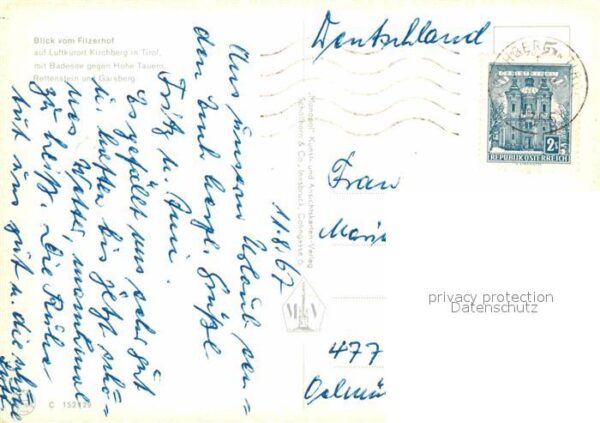 Blick vom Filzerhof
auf Luftkurort Kirchberg in Tirol,
mit Badesee gegen Hohe Tauern,
Rettenstein und Gaisberg
11.8.67
Aus unserm Urlaub sen=
den Euch herzl. Grüße
Fritz u. Anni.
Es gefällt uns sehr gut
bis jetzt schö=
nes Wetter, manchmal
zu heiß. Die Ruhe
tut uns gut u. die schöne
C 152129
"Monopol" Kunst- und Ansichtskarten-Verlag
Schöllhorn & Co., Innsbruck,
M V
Deutschland
2 S
REPUBLIK ÖSTERREICH
Frau
Maria
477
privacy protection
Datenschutz